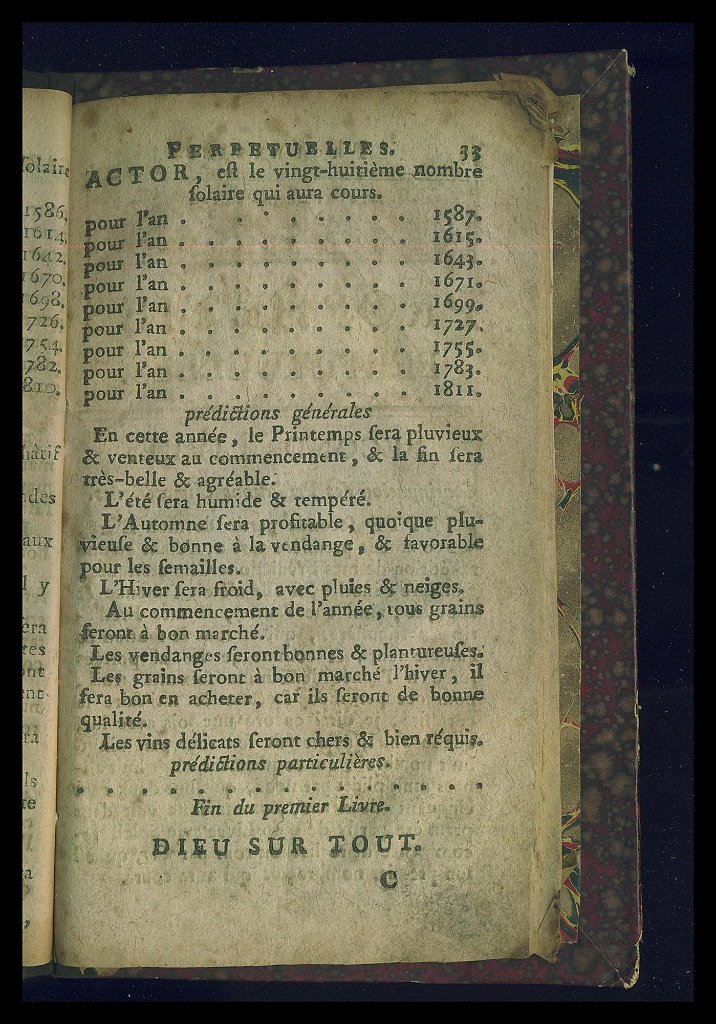 PERPETUELLES. 33
ACTOR, eſt le vingt-huitième nombre
ſolaire qui aura cours.
pour l'an . . . . . . . . . 1587.
pour l'an . . . . . . . . . 1615.
pour l'an . . . . . . . . . 1643.
pour l'an . . . . . . . . . 1671.
pour l'an . . . . . . . . . 1699.
pour l'an . . . . . . . . . 1727.
pour l'an . . . . . . . . . 1755.
pour l'an . . . . . . . . . 1783.
pour l'an . . . . . . . . . 1811.
prédictions générales
En cette année, le Printemps ſera pluvieux
& venteux au commencement, & la fin ſera
très-belle & agréable.
L'été ſera humide & tempéré.
L'Automne ſera profitable, quoique plu-
vieuſe & bonne à la vendange, & favorable
pour les ſemailles.
L'Hiver ſera froid, avec pluies & neiges.
Au commencement de l'année, tous grains
ſeront à bon marché.
Les vendanges ſeront bonnes & plantureuſes.
Les grains ſeront à bon marché l'hiver, il
ſera bon en acheter, car ils ſeront de bonne
qualité.
Les vins délicats ſeront chers & bien réquis.
prédictions particulières.
. . . . . . . . . . . . . . . . . . .
Fin du premier Livre.
DIEU SUR TOUT.
C
ſolaire
1586.
1614.
1642.
1670.
1698.
726.
754.
782.
810.